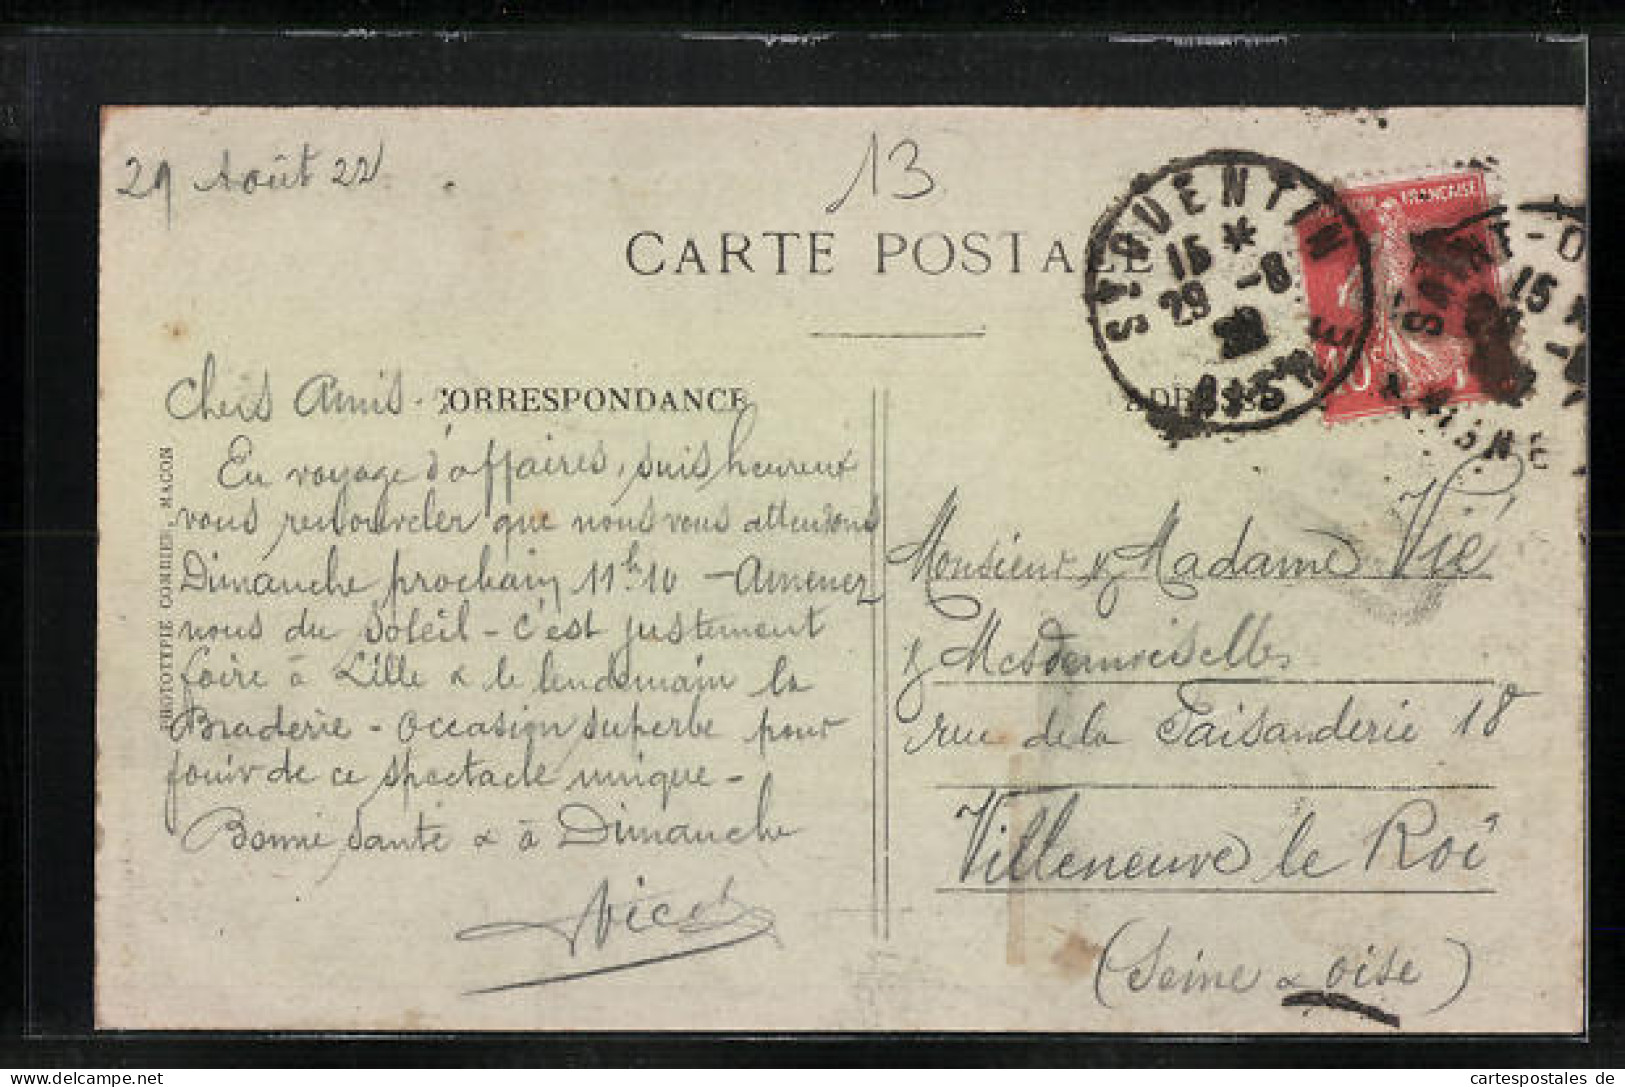 29 Août 22
13
CARTE POSTALE
ST QUENTIN
15 *
29 -8
22
AISNE
FRANÇAISE
10c
SAINT-Q
15
AISNE
CORRESPONDANCE
ADRESSE
Chers Amis -
En voyage d'affaires, suis heureux
vous renouveler que nous vous attendons
Dimanche prochain 11h10 - Amenez
nous du Soleil - C'est justement
foire à Lille & le lendemain la
Braderie - Occasion superbe pour
jouir de ce spectacle unique -
Bonne Santé & à Dimanche
PHOTOTYPIE COMBIER, MACON
Monsieur & Madame Vié
& Mesdemoiselles
rue de la Faisanderie 18
Villeneuve le Roi
(Seine & Oise)
cartespostales.de